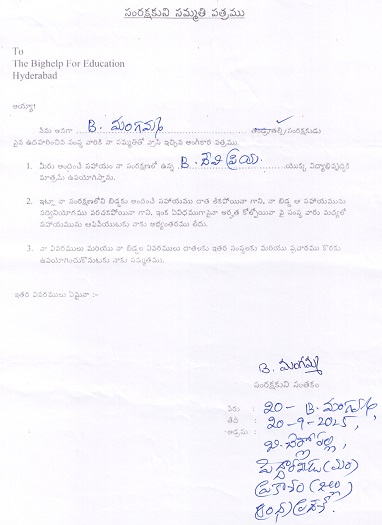 సంరక్షకుని సమ్మతి పత్రము
To
The Bighelp For Education
Hyderabad
అయ్యా!
నేను అనగా B. మంగమ్మ తండ్రి/తల్లి/సంరక్షకుడు
పైన ఉదహరించిన సంస్థ వారికి నా సమ్మతితో వ్రాసి ఇచ్చిన అంగీకార పత్రము.
1. మీరు అందించే సహాయం నా సంరక్షణలో ఉన్న B. దేవి ప్రియ యొక్క విద్యాభివృద్ధికి
మాత్రమే ఉపయోగిస్తాను.
2. ఇట్లు నా సంరక్షణలోని బిడ్డకు అందించే సహాయము దాత లేకపోయినా గాని, నా బిడ్డ ఆ సహాయమును
సద్వినియోగము పరచకపోయినా గాని, ఇంక ఏవిధముగానైనా అర్హత కోల్పోయినా పై సంస్థ వారు మధ్యలో
సహాయమును ఆపివేయుటకు నాకు అభ్యంతరము లేదు.
3. నా వివరములు మరియు నా బిడ్డల వివరములు దాతలకు ఇతర సంస్థలకు మరియు ప్రచారము కొరకు
ఉపయోగించుకొనుటకు నాకు సమ్మతము.
ఇతర వివరములు ఏమైనా :-
B. మంగమ్మ
సంరక్షకుని సంతకం
పేరు : B. మంగమ్మ
తేది : 20-9-2025,
అడ్రసు :
పెద్దారవీడు (మం)
ప్రకాశం (జిల్లా)
ఆంధ్రప్రదేశ్.